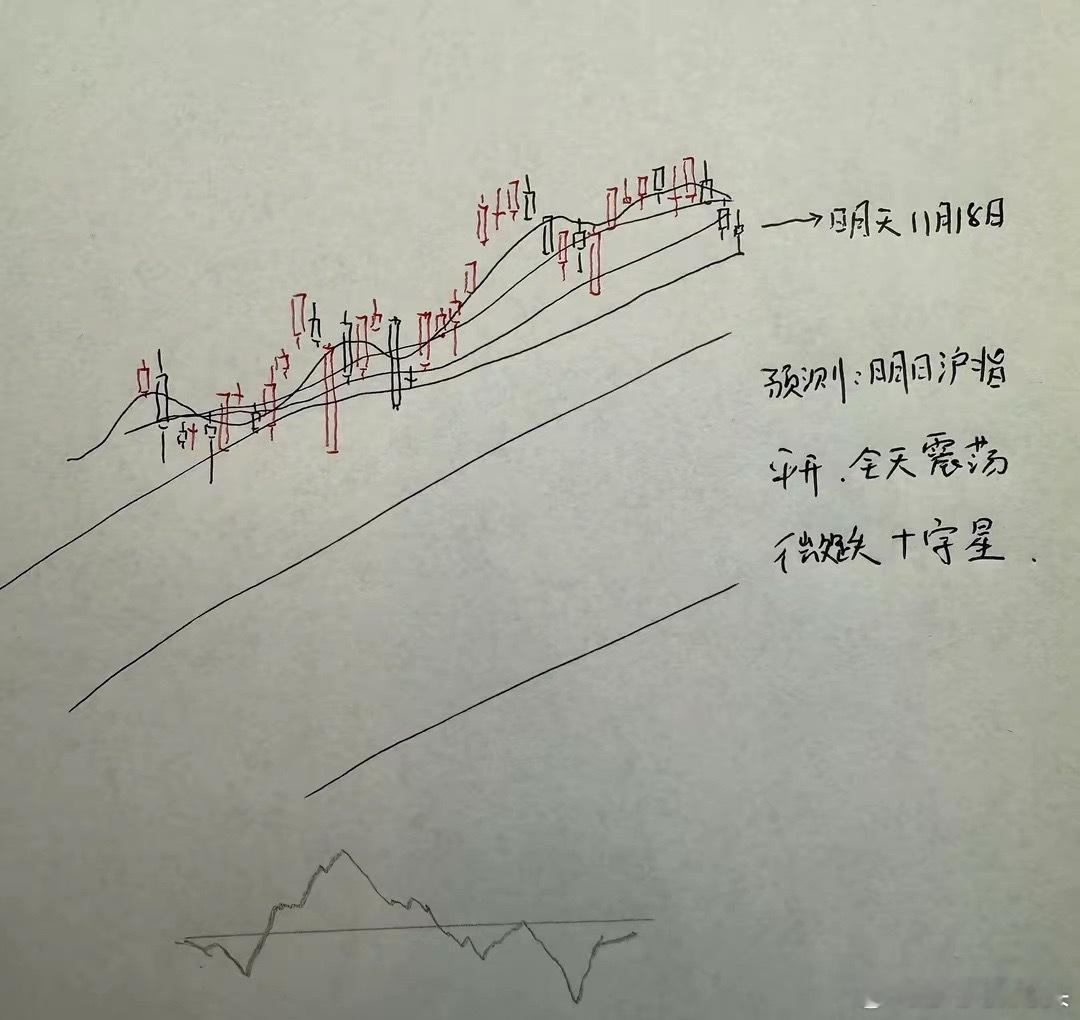 明天11月18日
预测:明日沪指
平开.全天震荡
微跌十字星.